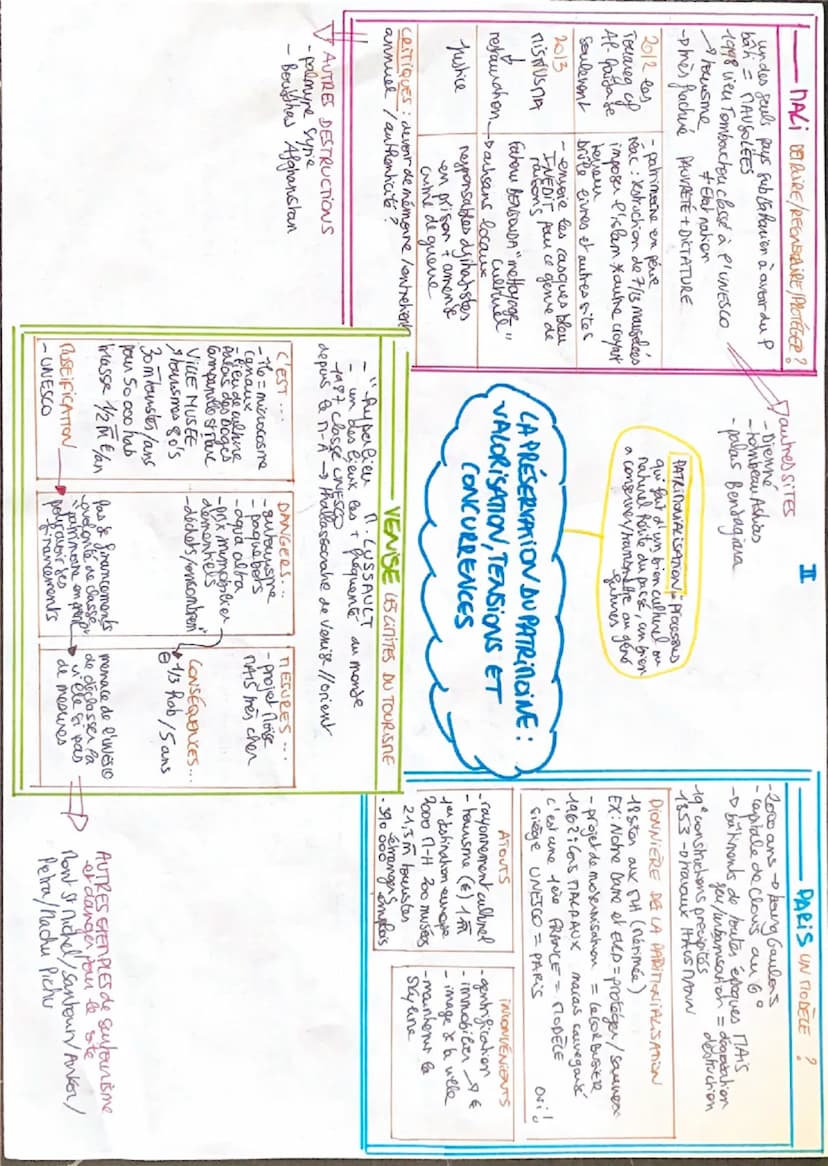 II
LA PRÉSERVATION DU PATRIMOINE :
VALORISATION, TENSIONS ET
CONCURRENCES
PATRIMONIALISATION = processus
qui fait d'un bien culturel ou
naturel traité du passé, un bien
à conserver/transmettre au géné
futures
MALI DÉTRUIRE/RECONSTRUIRE/PROTÉGER ?
un des seuls pays subsaharien à avoir du P
bâti = MAUSOLÉES
1998 vieu Tombouctou classé à l'UNESCO
→ tourisme ≠ Etat nation
→ très fragile PAUVRETÉ + DICTATURE
2012 les
Touareg cf
se
soulèvent
- patrimoine en péril
réac : destruction de 7/13 mausolées
imposer l'islam x autre croyant
brûle livres et autres sites
2013
MISNUSMA
- envoie les casques bleu
INÉDIT pour ce genre de
raisons
Fatou BENSOUDA "nettoyage
culturel"
restauration → artisans locaux
Justice
responsables djihadistes
en prison + amende
crime de guerre
CRITIQUES : devoir de mémoire / entretien
annuel / authenticité ?
AUTRES DESTRUCTIONS
- palmyre Syrie
- Bouddhas Afghanistan
autres SITES
- Djenné
- tombeau Askias
- palais Bandiagara
VENISE LES LIMITES DU TOURISME
- "hyperlieu" M. LUSSAULT
- un des lieux les + fréquenté du monde
1987 classé UNESCO
depuis le M-A → thallassocratie de Venise // orient
C'EST ...
- île = microcosme
canaux
- lieu de culture
palais des Doges
campanile St Marc
VILLE MUSÉE
↗ tourismes 80's
30 m touristes/ans
pour 50 000 hab
DANGERS ...
- surtourisme
- paquebots
- aqua alta
- prix immobilier
démentiels
- déchets/encombrem
MESURES ...
- projet Moïse
MAIS très cher
CONSÉQUENCES ...
⊖ 1/3 hab / 5 ans
- UNESCO
pas de financements
volonté de classer
"patrimoine en péril"
pour avoir des
financements
menace de l'UNESCO
de déclasser la
ville si pas
de mesures
AUTRES EXEMPLES de surtourisme
et danger pour le site
Mont St Michel / Santorin / Ankor /
Petra / Machu Pichu
PARIS UN MODÈLE ?
- 2000 ans →
- capitale de Clovis au 6°
→ bâtiments de toutes époques MAIS
destruction
19° constructions précipitées
1853 → travaux HAUSMANN
PIONNIÈRE DE LA PATRIMONIALISATION
18 sites aux MH (Mérimée)
EX: Notre Dame et = protéger/sauver
- projet de modernisation = Le CORBUSIER
1962 : loi MALRAUX marais sauvegardé
c'est une 1ère FRANCE = MODÈLE
siège UNESCO = PARIS
oui !
ATOUTS
- rayonnement culturel
- tourisme (€) 1 m
1er destination europe
2000 M-H 200 musées
21,3 m touristes
étrangers
- 390 000 emplois
INCONVÉNIENTS
- gentrification
- immobilier ↗ €
- image x la ville
- maintenir la
skyline